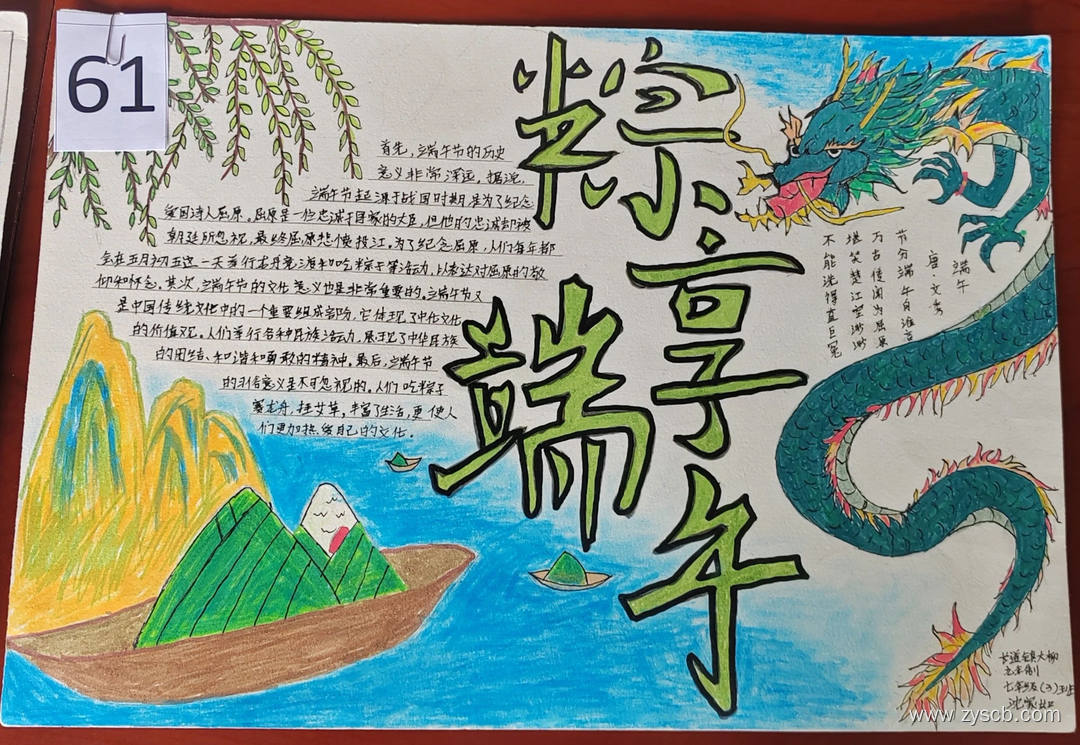 61
粽享
端午
首先,端午节的历史
意义非常深远。据说,
端午节起源于战国时期是为了纪念
爱国诗人屈原。屈原是一位忠诚于国家的大臣,但他的忠诚却被
朝廷所忽视,最终屈原悲愤投江。为了纪念屈原,人们每年都
会在五月初五这一天举行龙舟竞渡和吃粽子等活动,以表达对屈原的敬
仰和怀念。其次,端午节的文化意义也是非常重要的。端午节又
是中国传统文化中的一个重要组成部分,它体现了中华文化
的价值观。人们举行各种民族活动,展现了中华民族
的团结、和谐和勇敢的精神。最后,端午节
的习俗意义是不可忽视的。人们吃粽子
赛龙舟,挂艾草,丰富了生活,更使人
们更加热爱自己的文化。
端午
唐·文秀
节分端午自谁言
万古传闻为屈原
堪笑楚江空渺渺
不能洗得直臣冤
七年级(3)班
www.zyscb.com